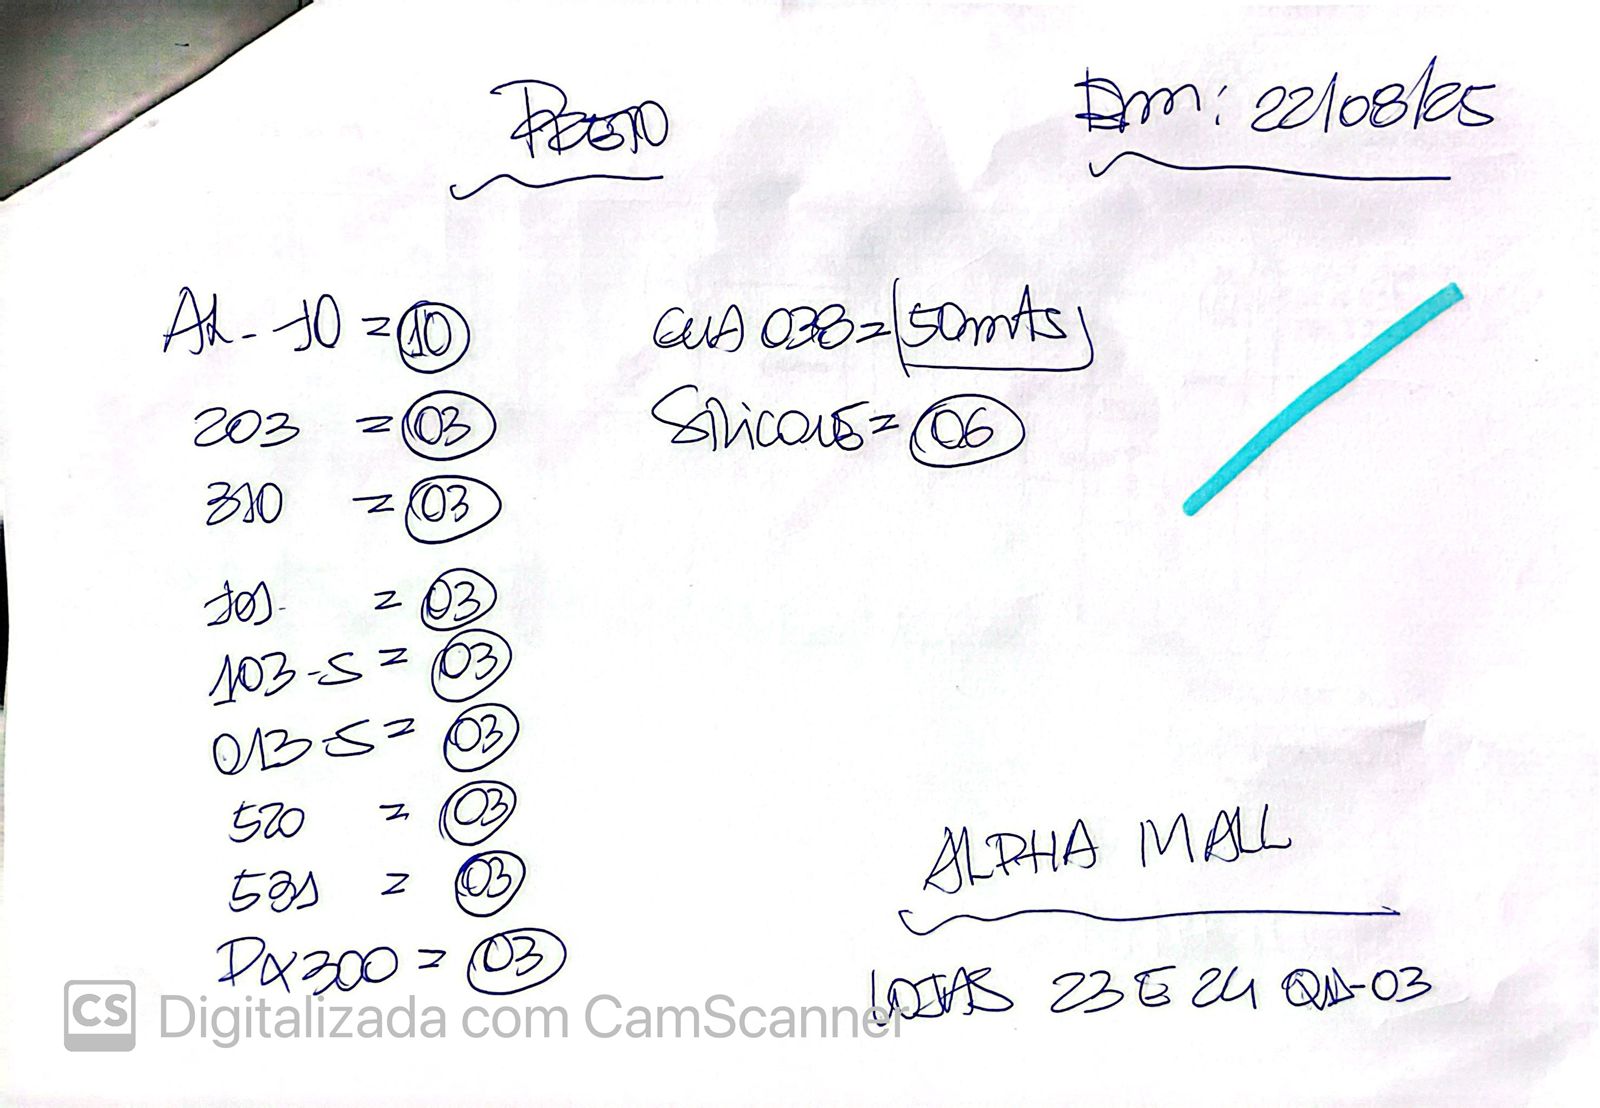 PRETO
Em: 22/08/25
AL-70 = 10
203 = 03
310 = 03
701 = 03
103-S = 03
013-S = 03
520 = 03
531 = 03
PX300 = 03
GUA 038 = 50mts
Silicone = 06
ALPHA MALL
LOJAS 23 E 24 QD-03
CS Digitalizada com CamScanner